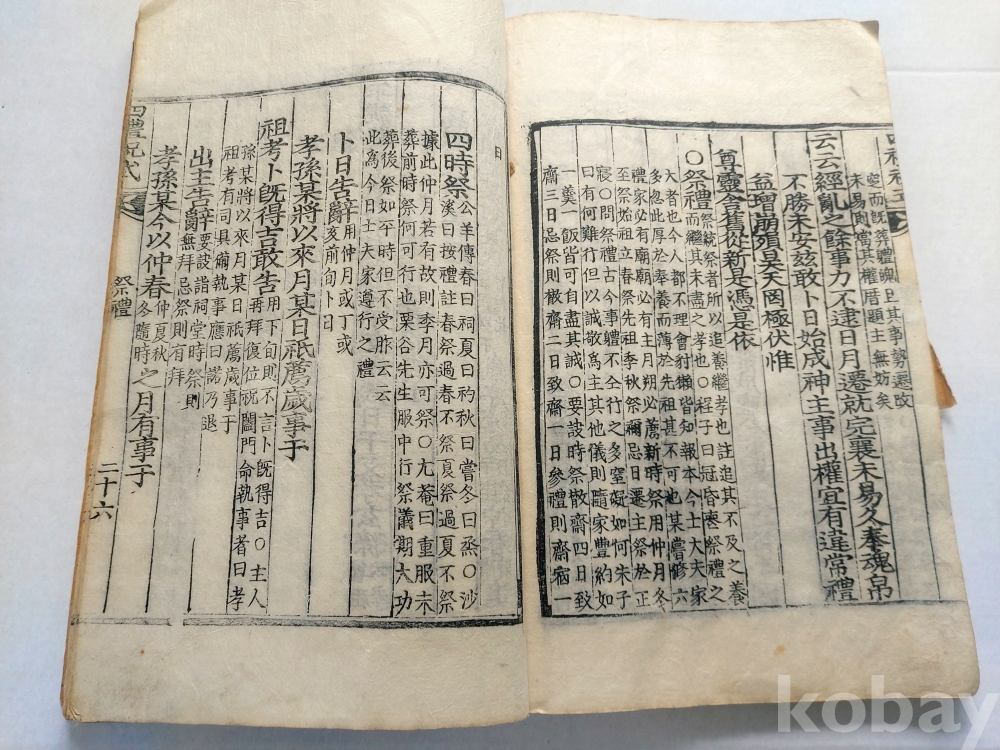 空而旣葬禮
且其事勢遷改
末易則當其權厝顯主無妨矣
云云經亂之餘事力不逮日月遷就完襄未易久奉魂帛
不勝未安玆敢卜日始成神主事出權宜有違常禮
益增崩殞昊天罔極伏惟
尊靈舍舊從新是憑是依
○祭禮
祭統祭者所以追養繼孝也註追其不及之養
而繼其未盡之孝也○程子曰冠昏喪祭禮之
大者也今人都不理會豺獺皆知報本今士大夫家
多忽此厚於奉養而薄於先祖甚不可也某嘗修六
禮家必有廟廟必有主月朔必薦新時祭用仲月冬
至祭始祖立春祭先祖季秋祭禰忌日遷主祭於正
寢○問祭禮古今事軆不仝行之多窒礙如何朱子
曰有何難行但以誠敬爲主其他儀則隨家豐約如
一羹一飯皆可自盡其誠○要訣時祭散齋四日致
齋三日忌祭則散齋二日致齋一日參禮則齋宿一
日
四時祭
公羊傳春曰祠夏曰礿秋曰嘗冬曰烝○沙
溪曰按禮註春祭過春不祭夏祭過夏不祭
據此仲月若有故則季月亦可祭○尤菴曰重服未
葬前時祭何可行也栗谷先生服中行祭儀期大功
葬後祭如平時但不受胙云云
此爲今日士夫家遵行之禮
卜日告辭
用仲月或丁或
亥前旬卜日
孝孫某將以來月某日祗薦歲事于
祖考卜旣得吉敢告
用下旬則不言卜旣得吉○主人
再拜復位祝闔門命執事者曰孝
孫某將以來月某日祗薦歲事于
祖考有司具脩執事應曰諾乃退
出主告辭
要訣詣祠堂時祭則
無拜忌祭則有拜
孝孫某今以仲春
仲夏秋
冬隨時
之月有事于
四禮祝式
祭禮
二十六
kobay